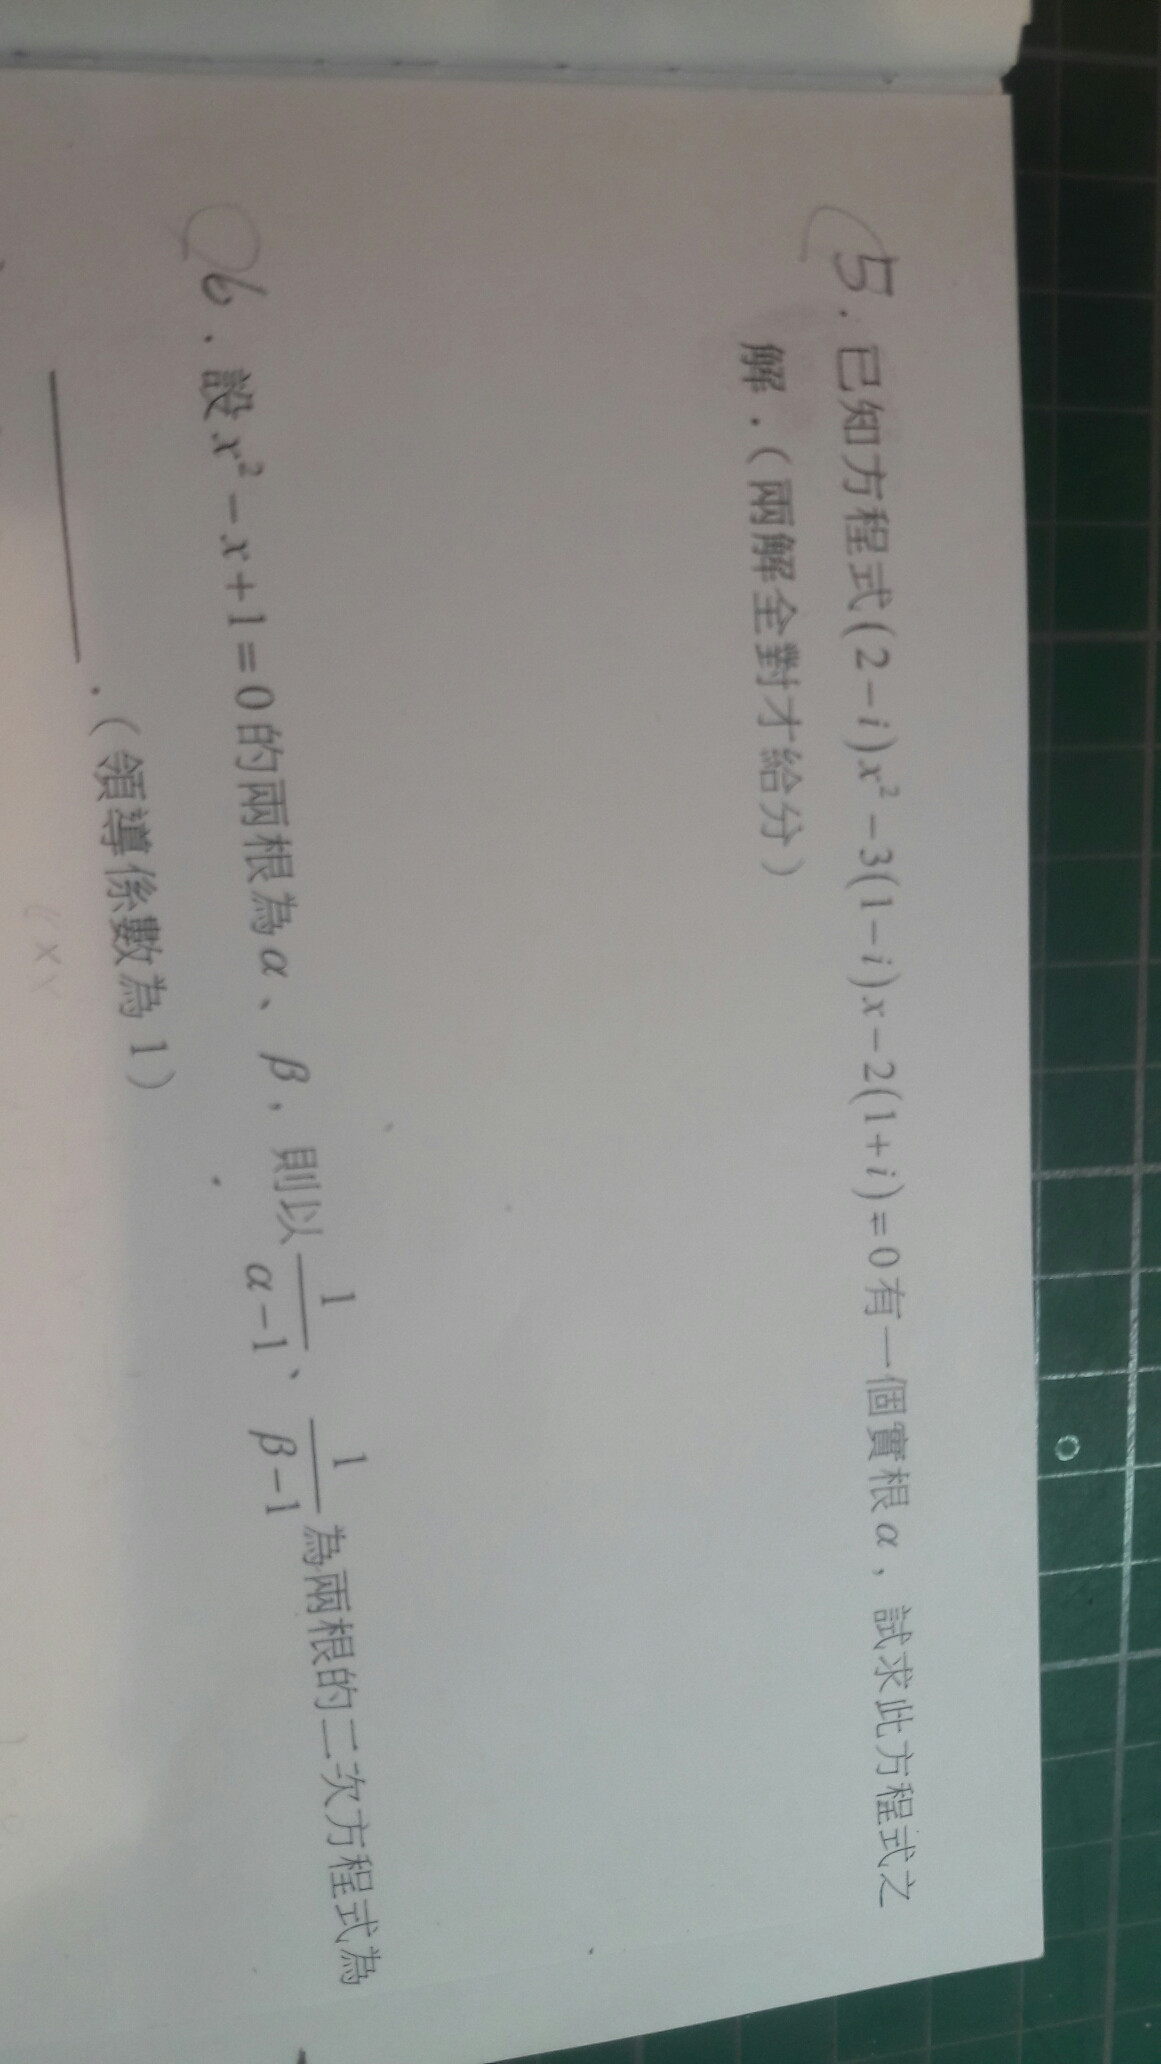 5.已知方程式(2-i)x²-3(1-i)x-2(1+i)=0有一個實根α,試求此方程式之
解.(兩解全對才給分)
6.設x²-x+1=0的兩根為α、β,則以\frac{1}{α-1}、\frac{1}{β-1}為兩根的二次方程式為
______.(領導係數為1)